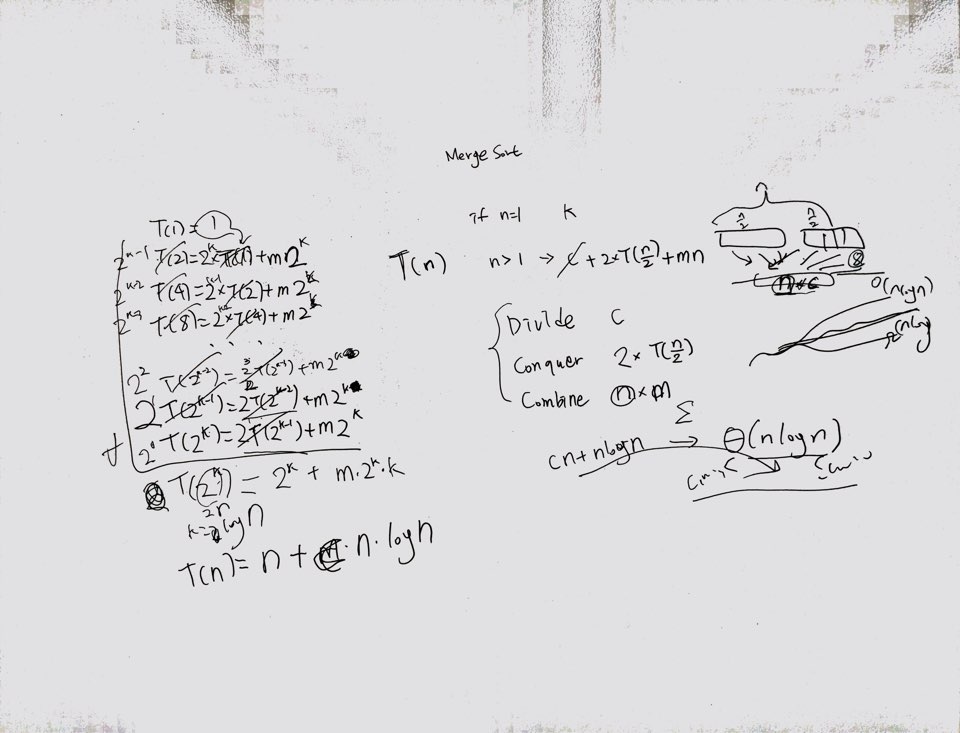 Merge Sort
T(1) = 1
2^{k-1} T(2) = 2^k × T(1) + m2^k
T(4) = 2^{k-1} × T(2) + m2^k
T(8) = 2^{k-2} × T(4) + m2^k
. . .
2^2 T(2^{k-2}) = 2^3 T(2^{k-3}) + m2^k
2 T(2^{k-1}) = 2 T(2^{k-2}) + m2^k
+ 2^0 T(2^k) = 2T(2^{k-1}) + m2^k
T(2^k) = 2^k + m·2^k·k
k = log n
T(n) = n + · n · log n
if n=1 k
T(n) n>1 → c + 2×T(n/2) + mn
Divide C
Conquer 2 × T(n/2)
Combine n × m
cn + nlogn → Θ(nlogn)
n
n/2 n/2
O(nlogn)